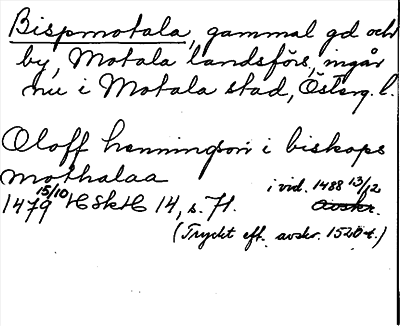 Bispmotala, gammal gd och
by, Motala landsförs, ingår
nu i Motala stad, Österg. l.
Oloff henningsön i biskops
mothalaa
i vid. 1488 13/12
1479 15/10 HSkH 14, s. 71. avskr.
(Tryckt eft. avskr. 1520-t.)